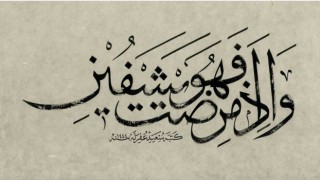 وَإِذَا مَرِضْتُ فَهُوَ يَشْفِينِ
كتبه